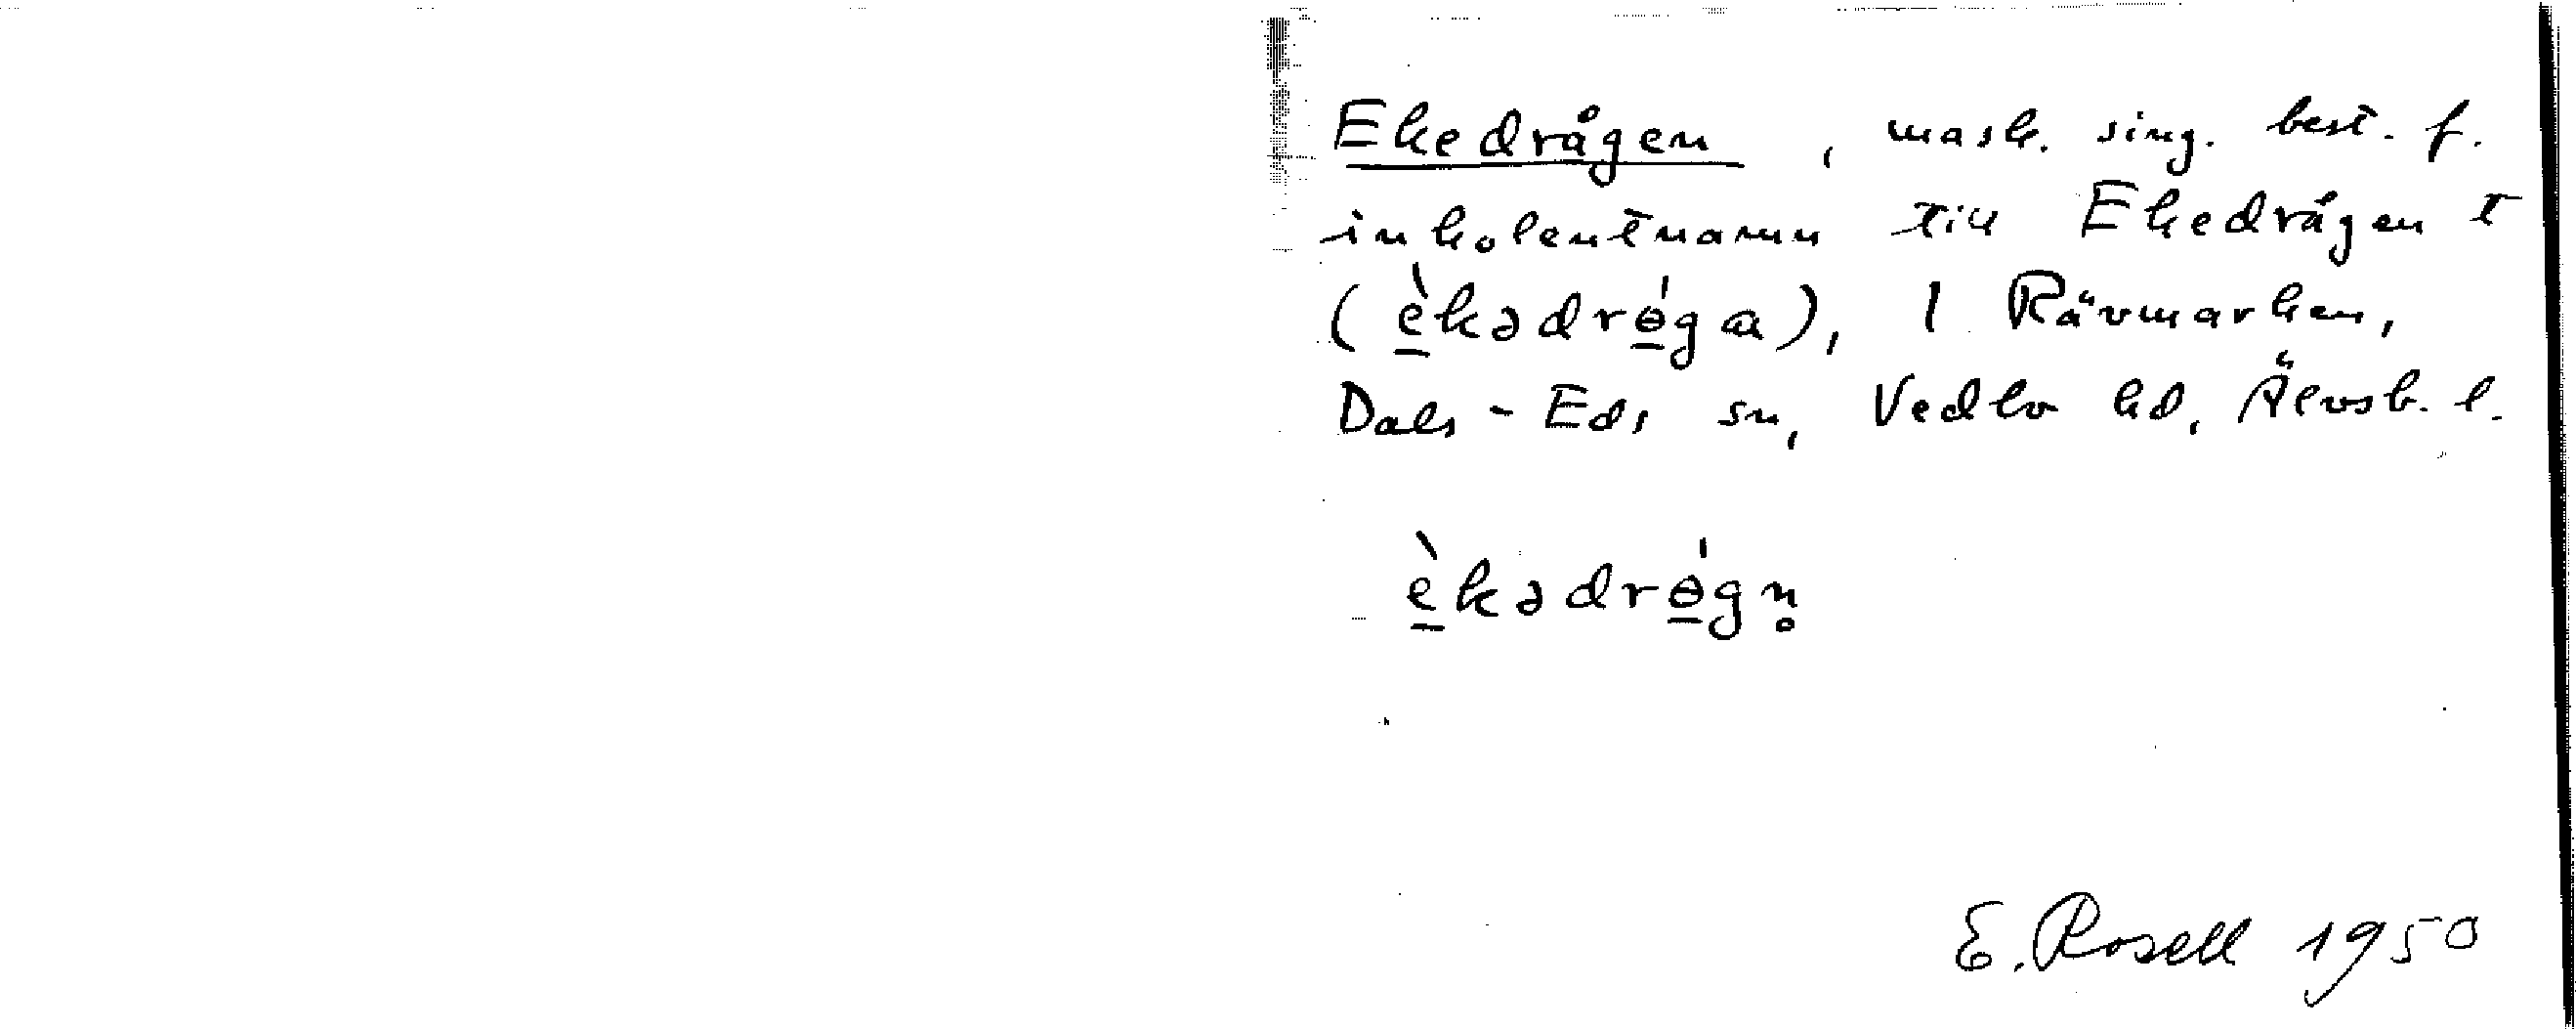 Ekedrågen, mask. sing. best. f.
inkolentnamn till Ekedrågen t
(è̱kədrɵ̱́ga), 1 Rävmarken,
Dals-Eds sn, Vedbo hd, Älvsb. l.
è̱kədrɵ̱́gn̥
E. Rosell 1950